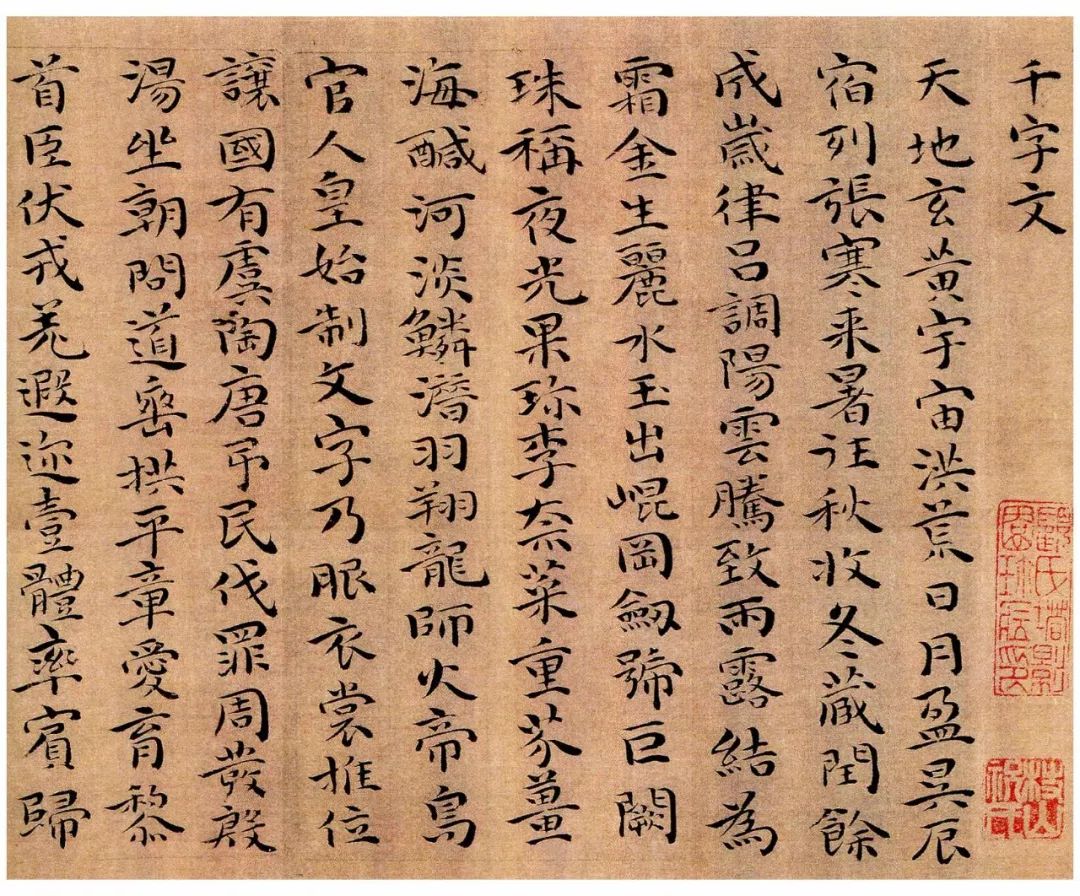 千字文
天地玄黄宇宙洪荒日月盈昃辰
宿列張寒来暑往秋收冬蔵閏餘
成歲律呂調陽雲騰致雨露結為
霜金生麗水玉出崐岡劔號巨闕
珠稱夜光果珎李柰菜重芥薑
海醎河淡鱗潛羽翔龍師火帝鳥
官人皇始制文字乃服衣裳推位
讓國有虞陶唐弔民伐罪周發殷
湯坐朝問道垂拱平章愛育黎
首臣伏戎羌遐迩壹體率賓歸